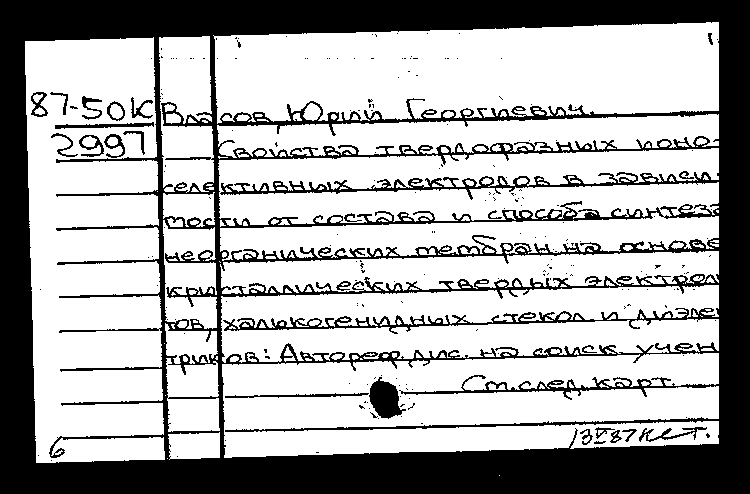 87-50К Власов, Юрий Георгиевич.
2997 Свойства твердофазных ионо-
селективных электродов в зависи-
мости от состава и способа синтеза
неорганических мембран на основе
кристаллических твердых электроли
тов, халькогенидных стекол и диэлек
триков: Автореф. дис. на соиск. учен
См. след. карт.
6